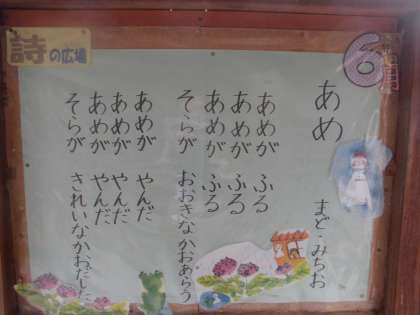 詩の広場
6
あめ
まど・みちお
あめが ふる
あめが ふる
あめが ふる
そらが おおきなかおあらう
あめが やんだ
あめが やんだ
あめが やんだ
そらが きれいなかおだした